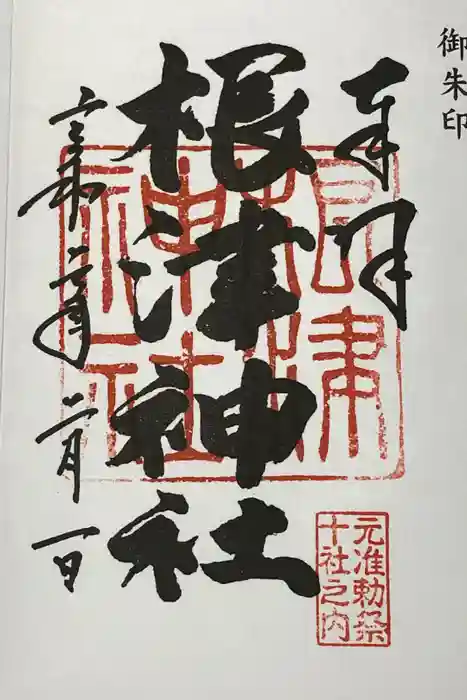 御朱印
奉拝
根津神社
根津神社
元准勅祭
十社之内
令和二年二月一日